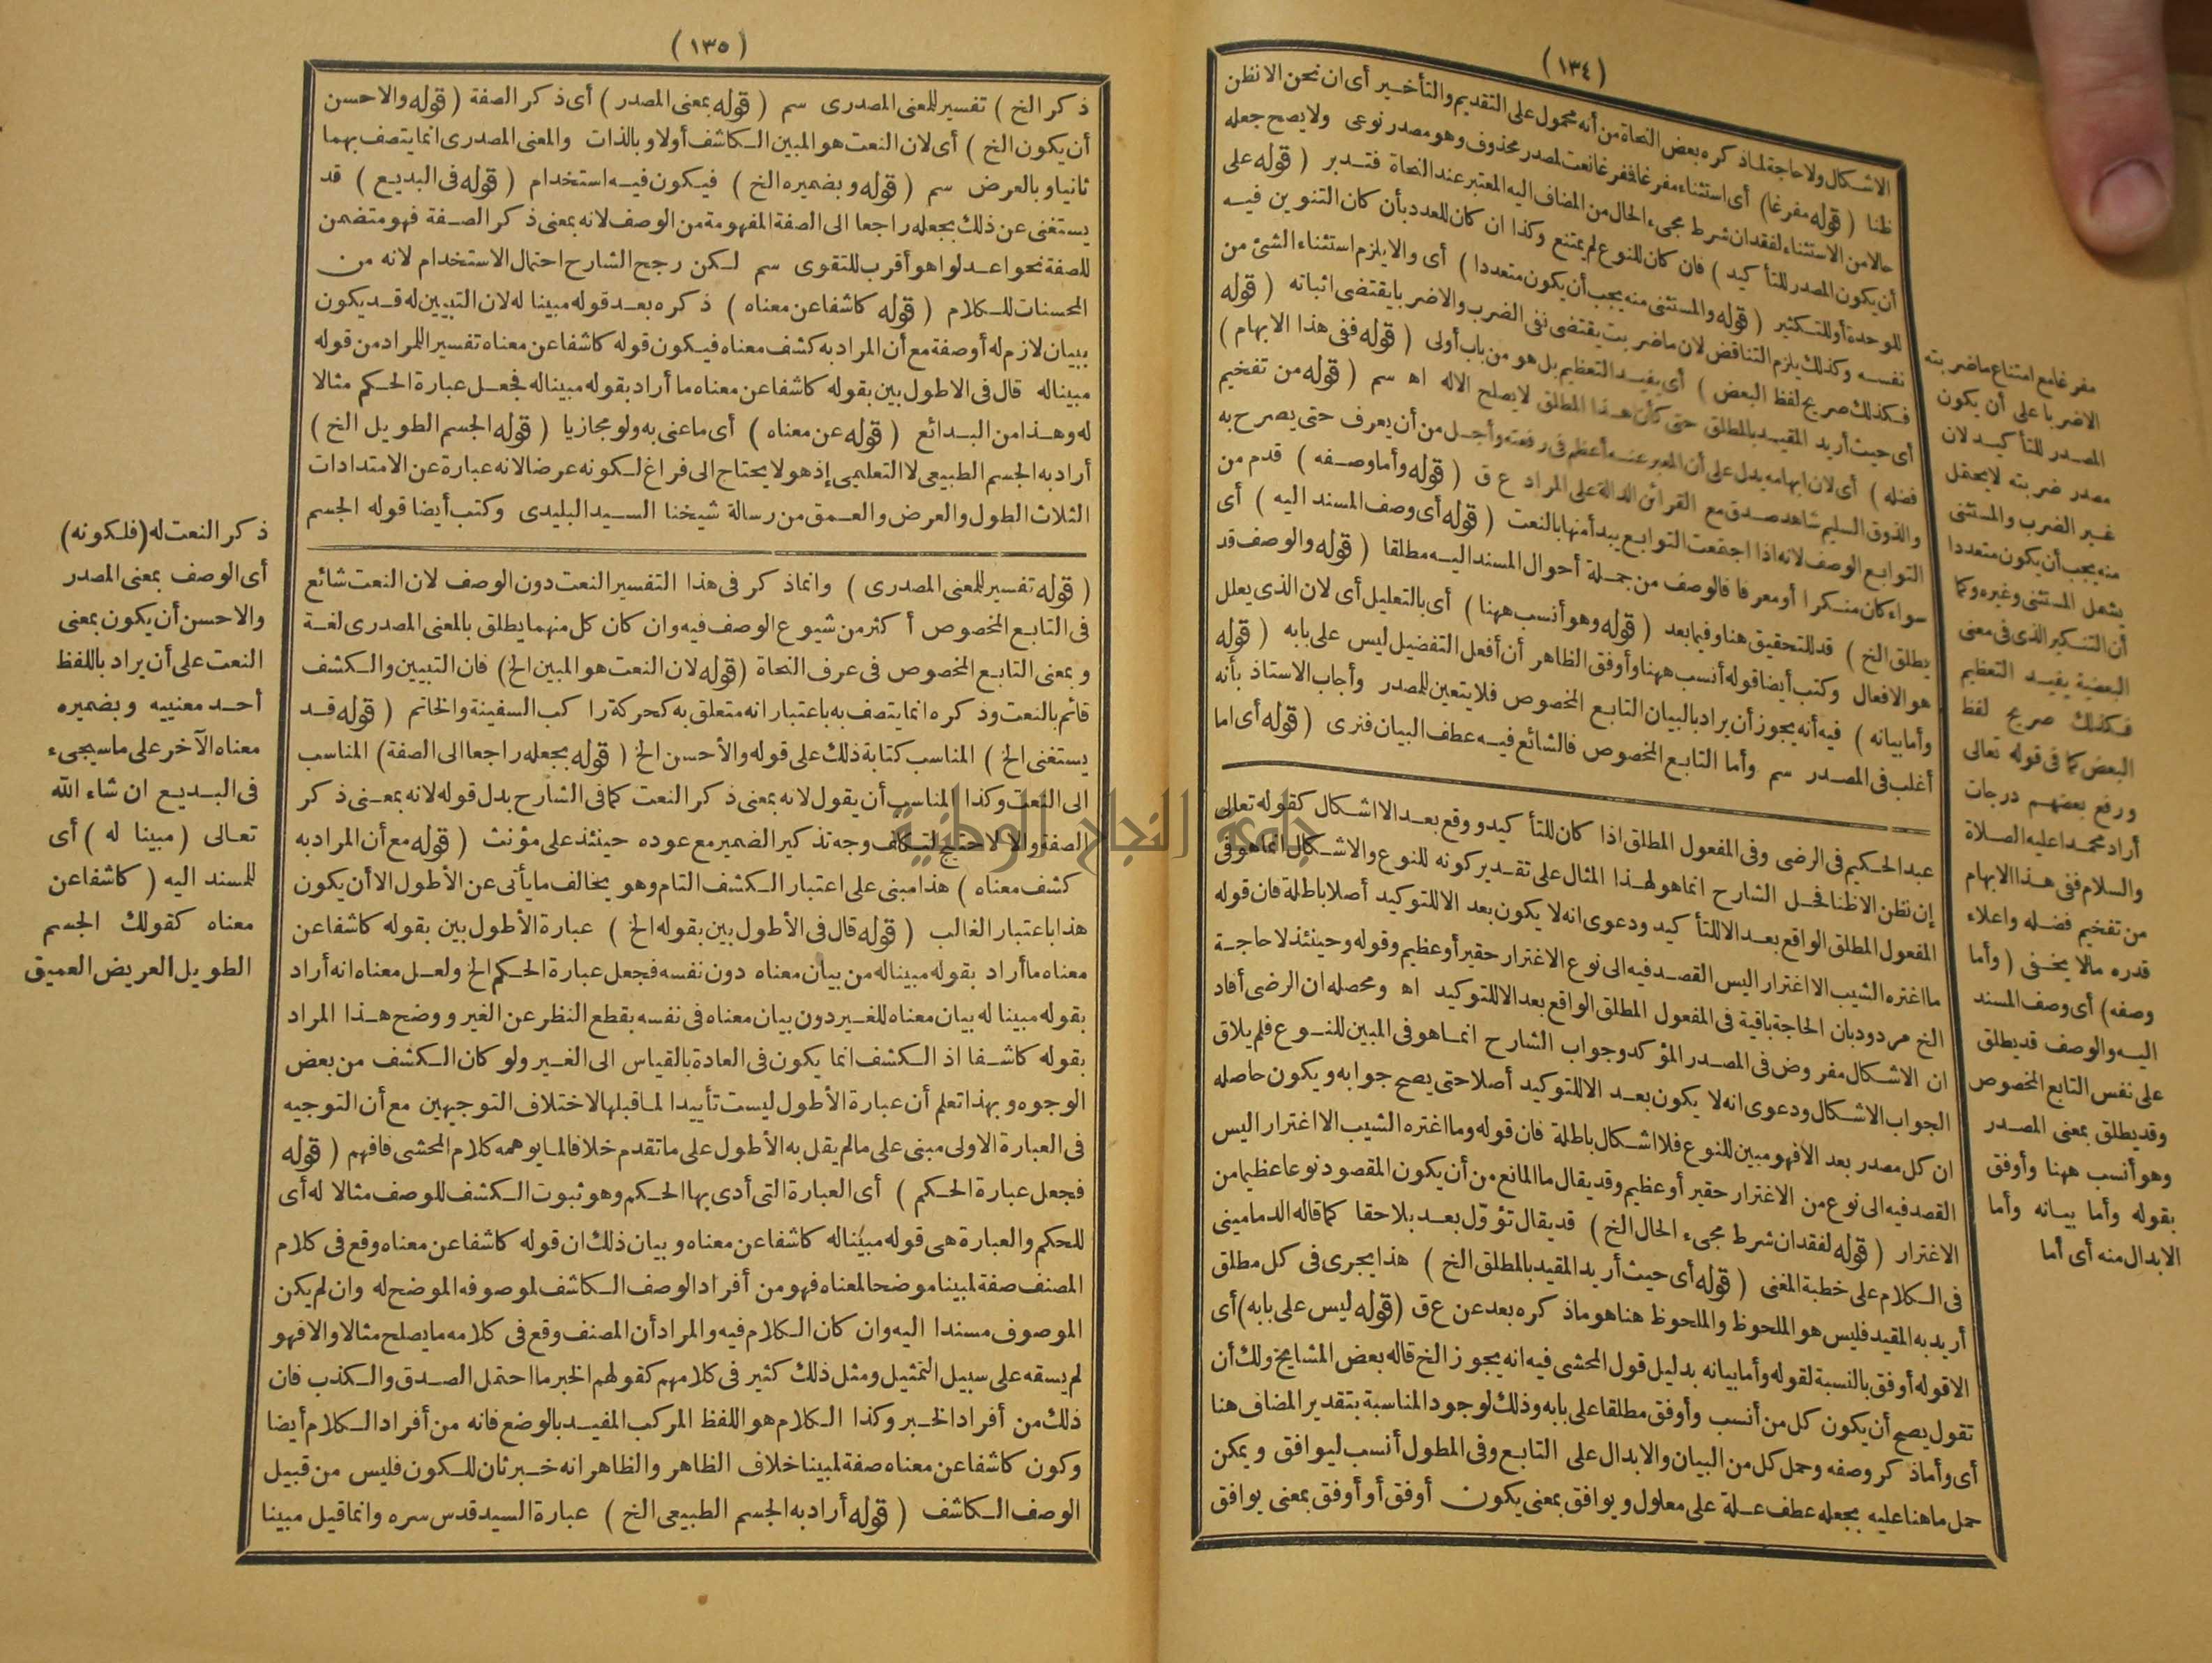 (١٣٤)
الاشكال ولا حاجة لماذكره بعض النحاة من أنه محمول على التقديم والتأخير أى ان نحن الا نظن
ظنا ( قوله مفرغا) أى استثناء مفرغا فمفرغا نعت لمصدر محذوف وهو مصدر نوعى ولا يصح جعله
حالا من الاستثناء لفقدان شرط مجىء الحال من المضاف اليه المعتبر عند النحاة فتدبر ( قوله على
أن يكون المصدر للتأكيد ) فان كان للنوع لم يمتنع وكذا ان كان للعدد بأن كان التنوين فيه
للوحدة أو للتكثير ( قوله والمستثنى منه يجب أن يكون متعددا ) أى والا يلزم استثناء الشئ من
نفسه وكذلك يلزم التناقض لان ماضربت يقتضى نفى الضرب والا ضربا يقتضى اثباته ( قوله
فكذلك صريح لفظ البعض ) أى يفيد التعظيم بل هو من باب أولى ( قوله ففى هذا الابهام )
أى حيث أريد المقيد بالمطلق حتى كأن هذا المطلق لا يصلح الا له اه سم ( قوله من تفخيم
فضله ) أى لان ابهامه يدل على أن المعبر عنه أعظم فى رفعته وأجل من أن يعرف حتى يصرح به
والذوق السليم شاهد صدق مع القرائن الدالة على المراد ع ق ( قوله وأما وصفه ) قدم من
التوابع الوصف لانه اذا اجتمعت التوابع يبدأ منها بالنعت ( قوله أى وصف المسند اليه ) أى
سواء كان منكرا أو معرفا فالوصف من جملة أحوال المسند اليه مطلقا ( قوله والوصف قد
يطلق الخ ) قد للتحقيق هنا وفيما بعد ( قوله وهو أنسب ههنا ) أى بالتعليل أى لان الذى يعلل
هو الافعال وكتب أيضا قوله أنسب ههنا وأوفق الظاهر أن أفعل التفضيل ليس على بابه ( قوله
وأما بيانه ) فيه أنه يجوز أن يراد بالبيان التابع المخصوص فلا يتعين للمصدر وأجاب الاستاذ بأنه
أغلب فى المصدر سم وأما التابع المخصوص فالشائع فيه عطف البيان فنرى ( قوله أى اما
عبد الحكيم فى الرضى وفى المفعول المطلق اذا كان للتأكيد ووقع بعد الا اشكال كقوله تعالى
إن نظن الا ظنا فحل الشارح انما هو لهذا المثال على تقدير كونه للنوع والاشكال انما هو فى
المفعول المطلق الواقع بعد الا للتأكيد ودعوى انه لا يكون بعد الا للتوكيد أصلا باطلة فان قوله
ما اغتره الشيب الا اغترارا ليس القصد فيه الى نوع الاغترار حقير أو عظيم وقوله وحينئذ لا حاجة
الخ مردود بان الحاجة باقية فى المفعول المطلق الواقع بعد الا للتوكيد اه ومحصله ان الرضى أفاد
ان الاشكال مفروض فى المصدر المؤكد وجواب الشارح انما هو فى المبين للنوع فلم يلاق
الجواب الاشكال ودعوى انه لا يكون بعد الا للتوكيد أصلا حتى يصح جوابه ويكون حاصله
ان كل مصدر بعد الا فهو مبين للنوع فلا اشكال باطلة فان قوله وما اغتره الشيب الا اغترارا ليس
القصد فيه الى نوع من الاغترار حقير أو عظيم وقد يقال ما المانع من أن يكون المقصود نوعا عظيما من
الاغترار ( قوله لفقدان شرط مجىء الحال الخ ) قد يقال تؤوّل بعد بلاحقا كما قاله الدمامينى
فى الكلام على خطبة المغنى ( قوله أى حيث أريد المقيد بالمطلق الخ ) هذا يجرى فى كل مطلق
أريد به المقيد فليس هو الملحوظ والملحوظ هنا هو ماذكره بعد عن ع ق (قوله ليس على بابه) أى
الا قوله أوفق بالنسبة لقوله وأما بيانه بدليل قول المحشى فيه انه يجوز الخ قاله بعض المشايخ ولك أن
تقول يصح أن يكون كل من أنسب وأوفق مطلقا على بابه وذلك لوجود المناسبة بتقدير المضاف هنا
أى وأما ذكر وصفه وحمل كل من البيان والابدال على التابع وفى المطول أنسب ليوافق ويمكن
حمل ما هنا عليه بجعله عطف علة على معلول ويوافق بمعنى يكون أوفق أو أوفق بمعنى يوافق
مفرغا مع امتناع ماضربته
الا ضربا على أن يكون
المصدر للتأكيد لان
مصدر ضربته لا يحتمل
غير الضرب والمستثنى
منه يجب أن يكون متعددا
يشمل المستثنى وغيره وكما
أن التنكير الذى فى معنى
البعضية يفيد التعظيم
فكذلك صريح لفظ
البعض كما فى قوله تعالى
ورفع بعضهم درجات
أراد محمدا عليه الصلاة
والسلام ففى هذا الابهام
من تفخيم فضله واعلاء
قدره مالا يخفى ( وأما
وصفه) أى وصف المسند
اليه والوصف قد يطلق
على نفس التابع المخصوص
وقد يطلق بمعنى المصدر
وهو أنسب ههنا وأوفق
بقوله وأما بيانه وأما
الابدال منه أى أما
(١٣٥)
ذكر الخ ) تفسير للمعنى المصدرى سم ( قوله بمعنى المصدر ) أى ذكر الصفة ( قوله والاحسن
أن يكون الخ ) أى لان النعت هو المبين الكاشف أولا وبالذات والمعنى المصدرى انما يتصف بهما
ثانيا وبالعرض سم ( قوله وبضميره الخ ) فيكون فيه استخدام ( قوله فى البديع ) قد
يستغنى عن ذلك بجعله راجعا الى الصفة المفهومة من الوصف لانه بمعنى ذكر الصفة فهو متضمن
للصفة نحو اعدلوا هو أقرب للتقوى سم لكن رجح الشارح احتمال الاستخدام لانه من
المحسنات للكلام ( قوله كاشفا عن معناه ) ذكره بعد قوله مبينا له لان التبيين له قد يكون
ببيان لازم له أو صفة مع أن المراد به كشف معناه فيكون قوله كاشفا عن معناه تفسيرا للمراد من قوله
مبينا له قال فى الاطول بين بقوله كاشفا عن معناه ما أراد بقوله مبينا له فجعل عبارة الحكم مثالا
له وهذا من البدائع ( قوله عن معناه ) أى ما عنى به ولو مجازيا ( قوله الجسم الطويل الخ )
أراد به الجسم الطبيعى لا التعليمى إذ هو لا يحتاج الى فراغ لكونه عرضا لانه عبارة عن الامتدادات
الثلاث الطول والعرض والعمق من رسالة شيخنا السيد البليدى وكتب أيضا قوله الجسم
( قوله تفسير للمعنى المصدرى ) وانما ذكر فى هذا التفسير النعت دون الوصف لان النعت شائع
فى التابع المخصوص أكثر من شيوع الوصف فيه وان كان كل منهما يطلق بالمعنى المصدرى لغة
وبمعنى التابع المخصوص فى عرف النحاة (قوله لان النعت هو المبين الخ) فان التبيين والكشف
قائم بالنعت وذكره انما يتصف به باعتبار انه متعلق به كحركة راكب السفينة والخاتم ( قوله قد
يستغنى الخ ) المناسب كتابة ذلك على قوله والأحسن الخ ( قوله بجعله راجعا الى الصفة) المناسب
الى النعت وكذا المناسب أن يقول لانه بمعنى ذكر النعت كما فى الشارح بدل قوله لانه بمعنى ذكر
الصفة والا لاحتاج لتكلف وجه تذكير الضمير مع عوده حينئذ على مؤنث ( قوله مع أن المراد به
كشف معناه ) هذا مبنى على اعتبار الكشف التام وهو يخالف ما يأتى عن الأطول الا أن يكون
هذا باعتبار الغالب ( قوله قال فى الأطول بين بقوله الخ ) عبارة الأطول بين بقوله كاشفا عن
معناه ما أراد بقوله مبينا له من بيان معناه دون نفسه فجعل عبارة الحكم الخ ولعل معناه انه أراد
بقوله مبينا له بيان معناه للغير دون بيان معناه فى نفسه بقطع النظر عن الغير ووضح هذا المراد
بقوله كاشفا اذ الكشف انما يكون فى العادة بالقياس الى الغير ولو كان الكشف من بعض
الوجوه وبهذا تعلم أن عبارة الأطول ليست تأييدا لما قبلها لاختلاف التوجيهين مع أن التوجيه
فى العبارة الاولى مبنى على مالم يقل به الأطول على ما تقدم خلافا لما يوهمه كلام المحشى فافهم ( قوله
فجعل عبارة الحكم ) أى العبارة التى أدى بها الحكم وهو ثبوت الكشف للوصف مثالا له أى
للحكم والعبارة هى قوله مبينا له كاشفا عن معناه وبيان ذلك ان قوله كاشفا عن معناه وقع فى كلام
المصنف صفة لمبينا موضحا لمعناه فهو من أفراد الوصف الكاشف لموصوفه الموضح له وان لم يكن
الموصوف مسندا اليه وان كان الكلام فيه والمراد أن المصنف وقع فى كلامه ما يصلح مثالا والا فهو
لم يسقه على سبيل التمثيل ومثل ذلك كثير فى كلامهم كقولهم الخبر ما احتمل الصدق والكذب فان
ذلك من أفراد الخبر وكذا الكلام هو اللفظ المركب المفيد بالوضع فانه من أفراد الكلام أيضا
وكون كاشفا عن معناه صفة لمبينا خلاف الظاهر والظاهر انه خبر ثان للكون فليس من قبيل
الوصف الكاشف ( قوله أراد به الجسم الطبيعى الخ ) عبارة السيد قدس سره وانما قيل مبينا
ذكر النعت له (فلكونه)
أى الوصف بمعنى المصدر
والاحسن أن يكون بمعنى
النعت على أن يراد باللفظ
أحد معنييه وبضميره
معناه الآخر على ما سيجىء
فى البديع ان شاء الله
تعالى ( مبينا له ) أى
للمسند اليه ( كاشفا عن
معناه كقولك الجسم
الطويل العريض العميق
جامعة النجاح الوطنية